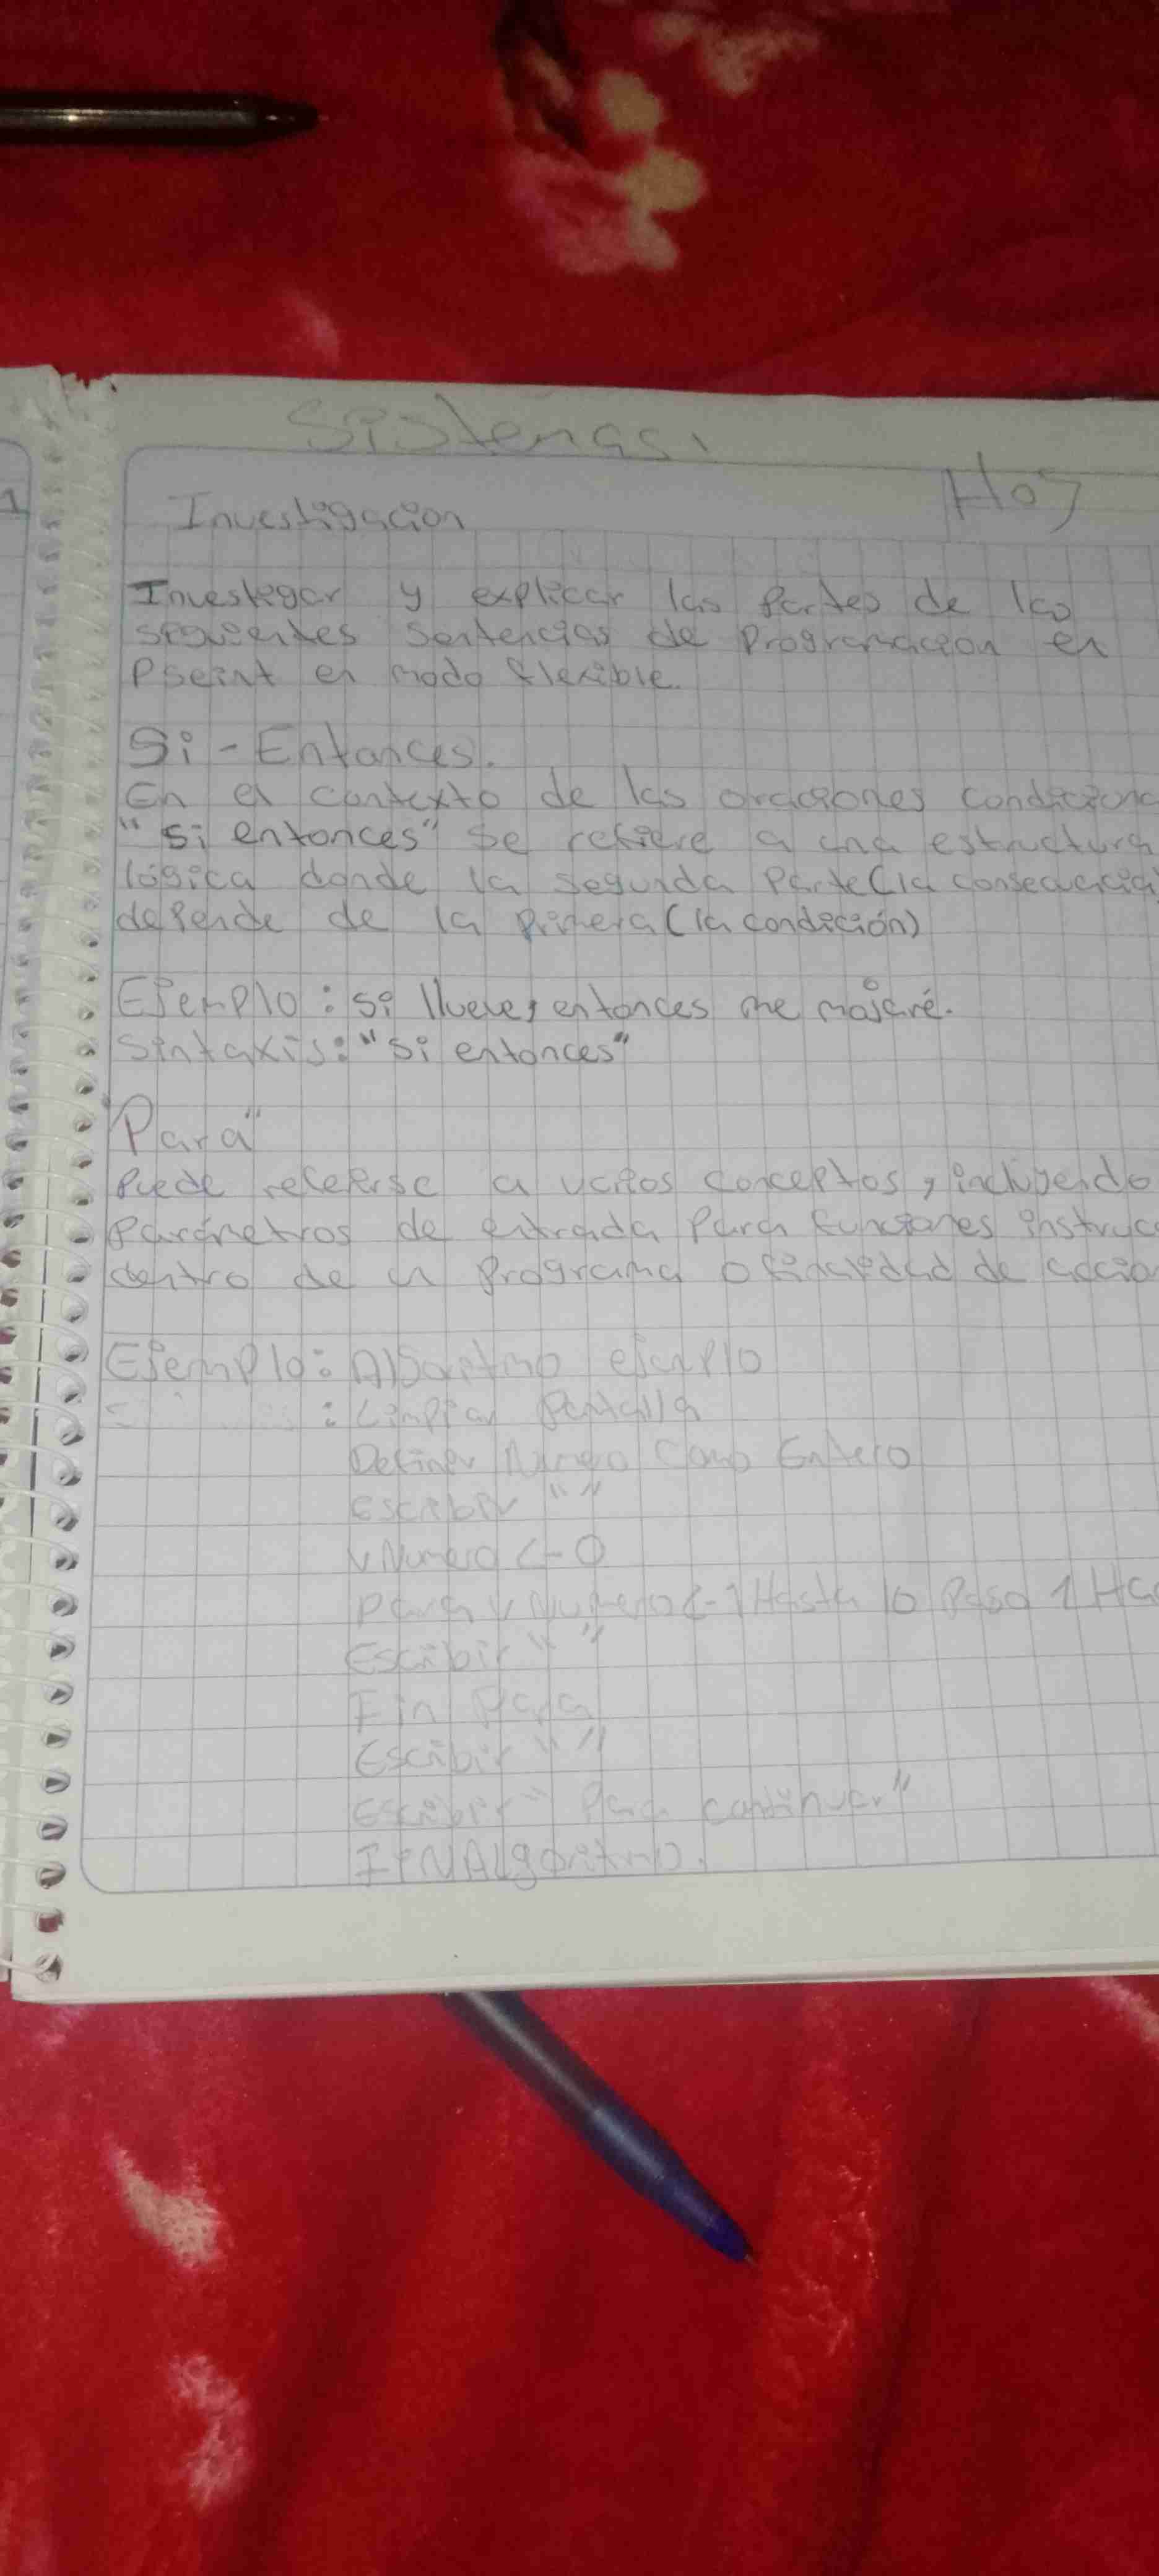 Sistemas.
Hoy
Investigacion
Investigar y explicar las Partes de las
siguientes Sentencias de Programacion en
Pseint en modo flexible.
Si - Entonces.
En el contexto de las oraciones condiciona
"Si entonces" Se refiere a una estructura
lógica donde la segunda Parte (la consecuencia)
depende de la Primera (la condición)
Ejemplo: si llueve, entonces me mojaré.
Sintaxis: "Si entonces"
"Para"
Puede referirse a varios conceptos, incluyendo
Parámetros de entrada Para funciones instruc
dentro de un Programa o finalidad de accio
Ejemplo: Algoritmo ejemplo
: Limpiar Pantalla
Definir Numero Como Entero
Escribir " "
vNumero <- 0
Para vNumero <- 1 Hasta 10 Paso 1 Hac
Escribir " "
Fin Para
Escribir " "
Escribir " Para continuar"
FiNAlgoritmo.
1